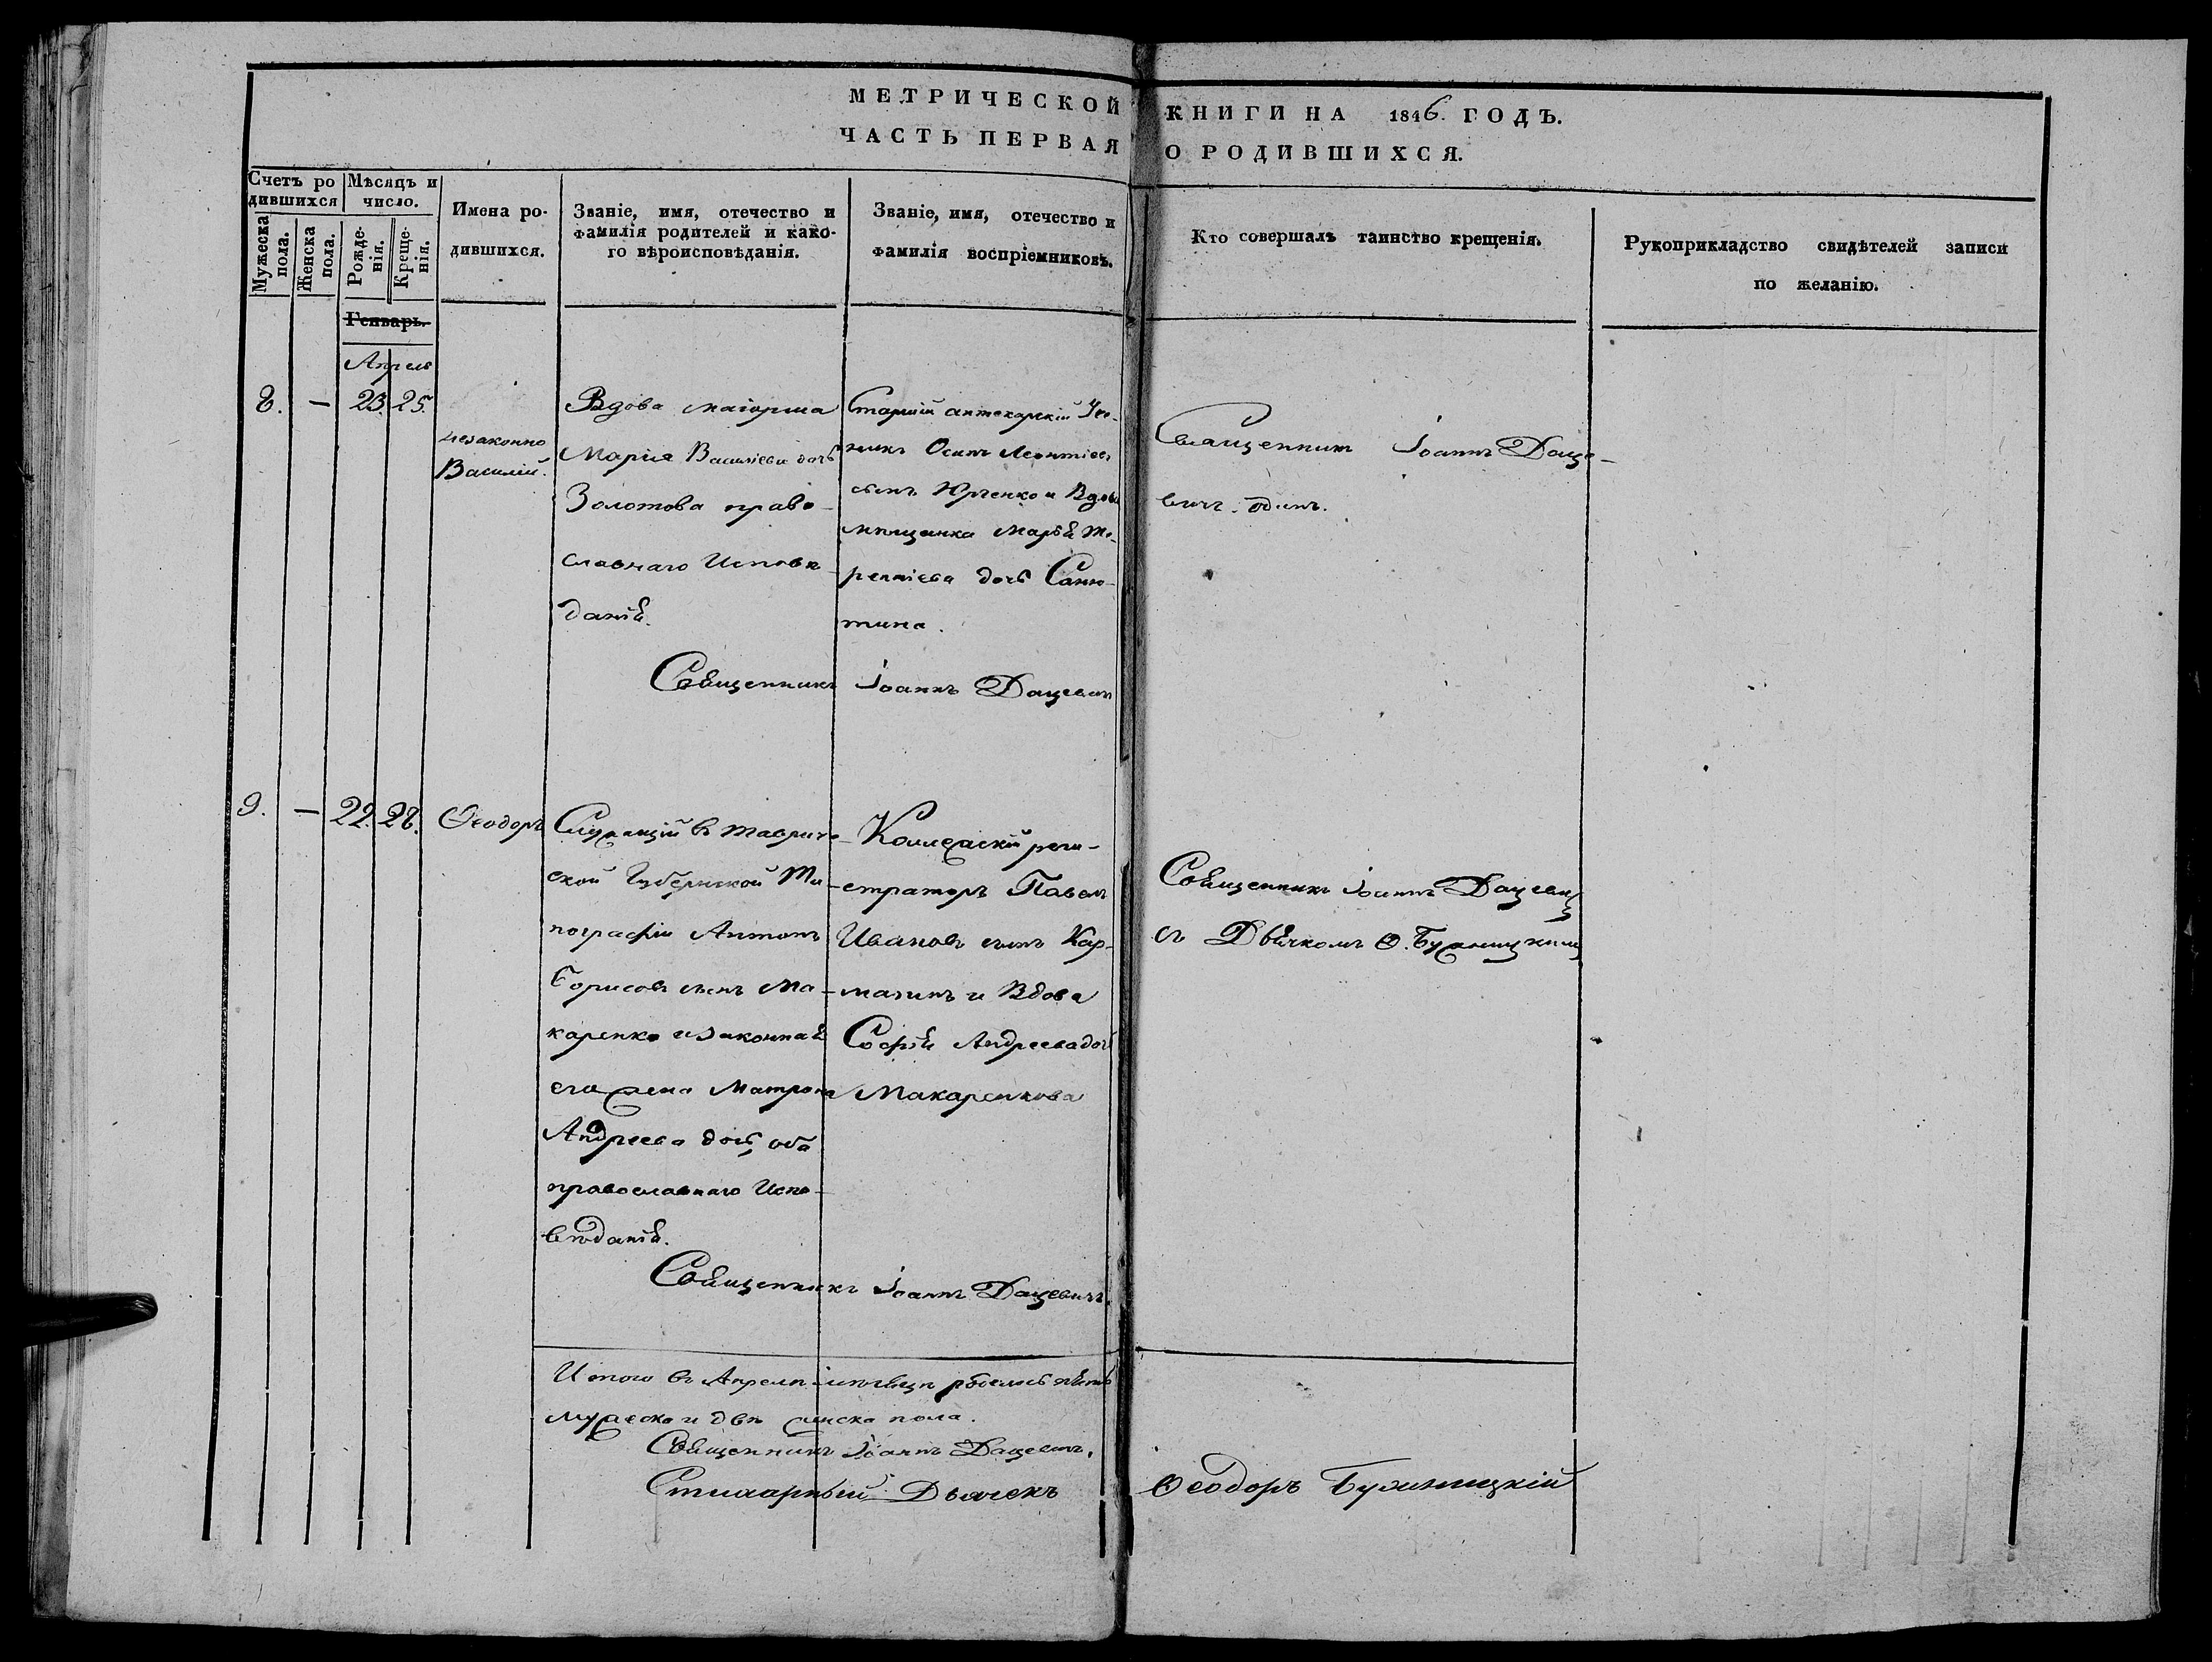 МЕТРИЧЕСКОЙ КНИГИ НА 1846. ГОДЪ.
ЧАСТЬ ПЕРВАЯ О РОДИВШИХСЯ.
Счетъ ро
дившихся
Мужеска
пола.
Женска
пола.
Мѣсяцъ и
число.
Рожде-
нія.
Креще-
нія.
Имена ро-
дившихся.
Званіе, имя, отечество и
фамилія родителей и како-
го вѣроисповѣданія.
Званіе, имя, отечество и
фамилія воспріемниковъ.
Кто совершалъ таинство крещенія.
Рукоприкладство свидѣтелей записи
по желанію.
Генварь.
Апрель
8. — 23. 25.
незаконно
Василій.
Вдова маіорша
Марія Василіева дочь
Золотова право-
славнаго Исповѣ-
данія.
Старшій аптекарскій Уче-
никъ Осипъ Леонтіев
сынъ Юрченко и Вдова
мѣщанка Марія Те-
рентіева дочь
тина.
Священникъ Іоаннъ Даце-
вичъ. один.
Священникъ Іоаннъ Дацевич
9. — 22. 28. Ѳеодоръ
Служащій въ Тавриче-
ской Губернской Ти-
пографіи Антонъ
Борисовъ сынъ Ма-
каренко и законная
его жена Матрона
Андреева дочь, оба
православнаго Испо-
вѣданія.
Коллежскій реги-
стратор Павелъ
Ивановъ сынъ Кар-
мазинъ и Вдова
Софія Андреева доч
Макаренкова
Священникъ Іоаннъ Дацевич
съ Дьячкомъ Ѳ.
Священникъ Іоаннъ Дацевичъ.
Итого въ Апрелѣ мѣсяцѣ родилось пять
мужеска и двѣ женска пола.
Священникъ Іоаннъ Дацевич.
Стихарный Дьячекъ Ѳеодоръ